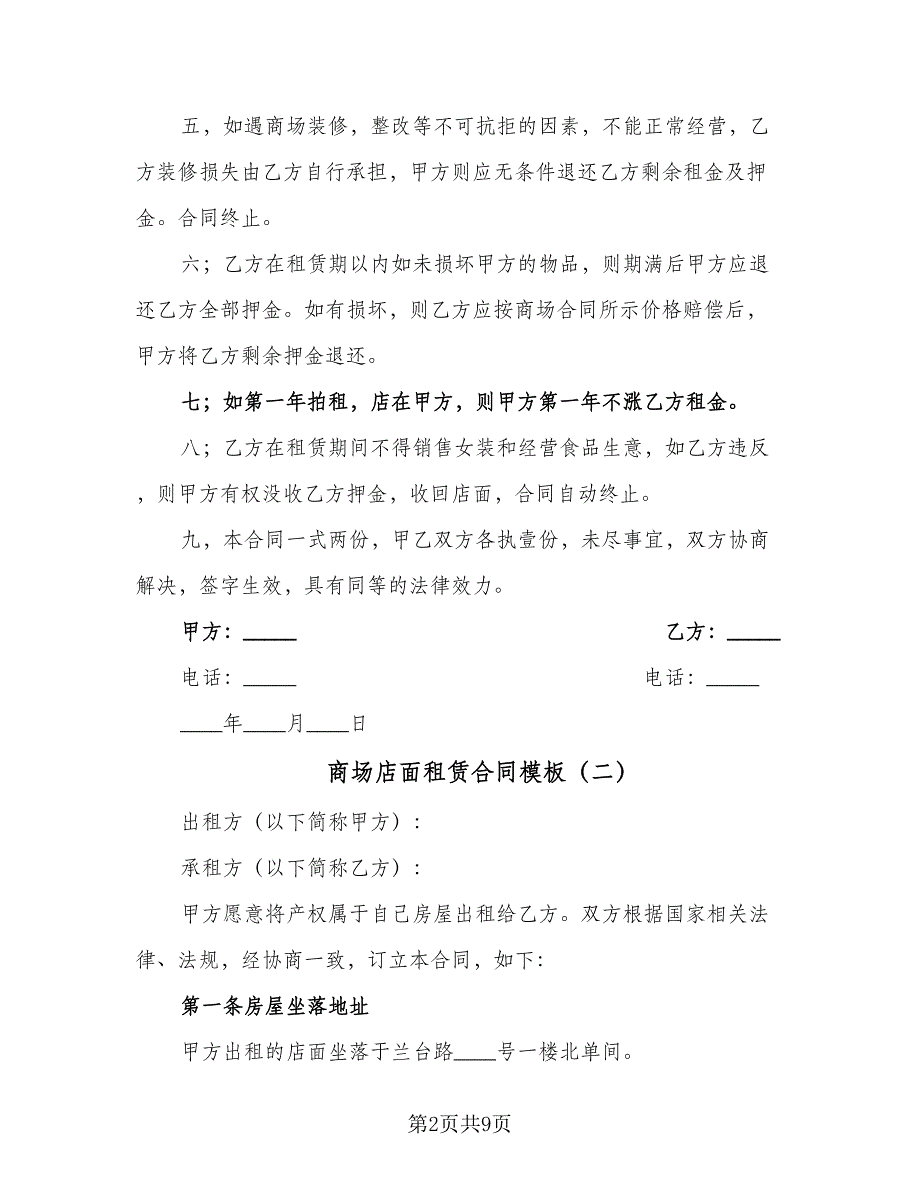 五，如遇商场装修，整改等不可抗拒的因素，不能正常经营，乙
方装修损失由乙方自行承担，甲方则应无条件退还乙方剩余租金及押
金。合同终止。
六；乙方在租赁期以内如未损坏甲方的物品，则期满后甲方应退
还乙方全部押金。如有损坏，则乙方应按商场合同所示价格赔偿后，
甲方将乙方剩余押金退还。
七；如第一年拍租，店在甲方，则甲方第一年不涨乙方租金。
八；乙方在租赁期间不得销售女装和经营食品生意，如乙方违反
，则甲方有权没收乙方押金，收回店面，合同自动终止。
九，本合同一式两份，甲乙双方各执壹份，未尽事宜，双方协商
解决，签字生效，具有同等的法律效力。
甲方：_____ 乙方：_____
电话：_____ 电话：_____
____年____月____日
商场店面租赁合同模板（二）
出租方（以下简称甲方）：
承租方（以下简称乙方）：
甲方愿意将产权属于自己房屋出租给乙方。双方根据国家相关法
律、法规，经协商一致，订立本合同，如下：
第一条房屋坐落地址
甲方出租的店面坐落于兰台路____号一楼北单间。
第2页共9页